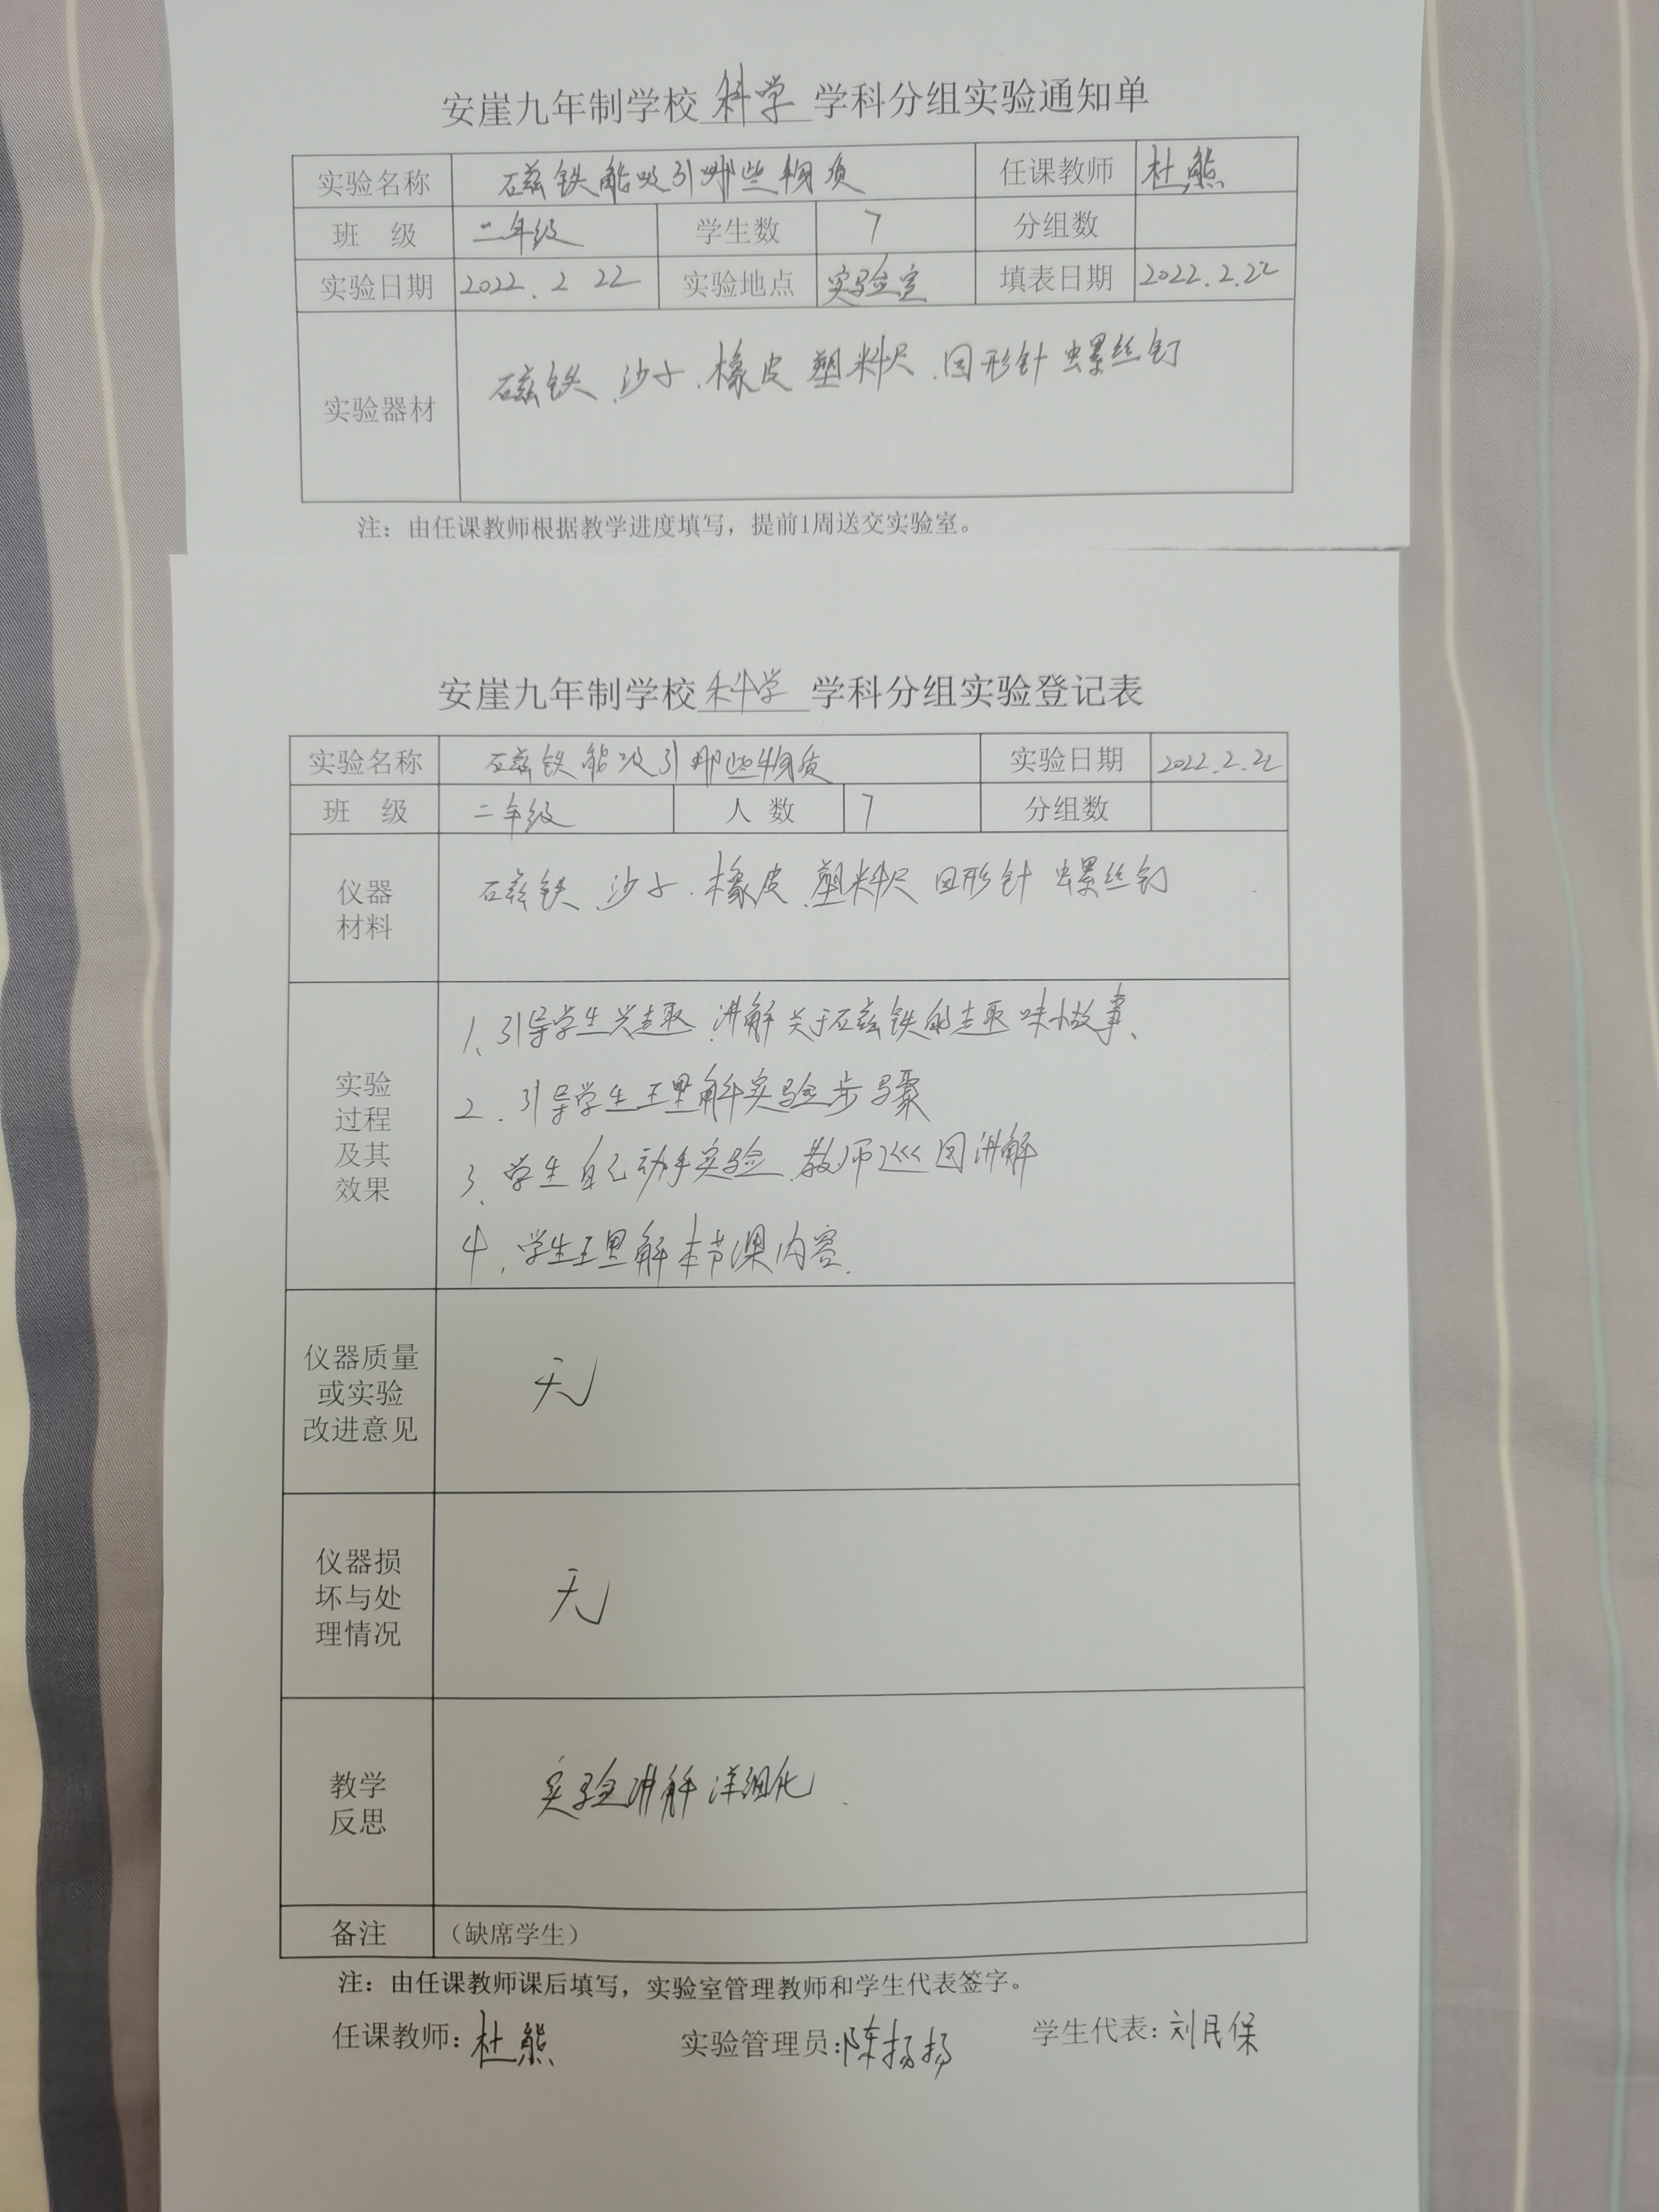 安崖九年制学校 科学 学科分组实验通知单
实验名称 磁铁能吸引哪些物质 任课教师 杜熊
班 级 二年级 学生数 7 分组数
实验日期 2022.2 22 实验地点 实验室 填表日期 2022.2.22
实验器材 磁铁.沙子.橡皮 塑料尺.回形针 螺丝钉
注：由任课教师根据教学进度填写，提前1周送交实验室。
安崖九年制学校 科学 学科分组实验登记表
实验名称 磁铁能吸引哪些物质 实验日期 2022.2.22
班 级 二年级 人 数 7 分组数
仪器
材料
磁铁.沙子.橡皮.塑料尺 回形针 螺丝钉
实验
过程
及其
效果
1、引导学生兴趣.讲解关于磁铁的趣味小故事、
2.引导学生理解实验步骤
3、学生自己动手实验.教师巡回讲解
4.学生理解本节课内容.
仪器质量
或实验
改进意见
无
仪器损
坏与处
理情况
无
教学
反思
实验讲解详细化.
备注 （缺席学生）
注：由任课教师课后填写，实验室管理教师和学生代表签字。
任课教师：杜熊 实验管理员：陈扬扬 学生代表：刘民保